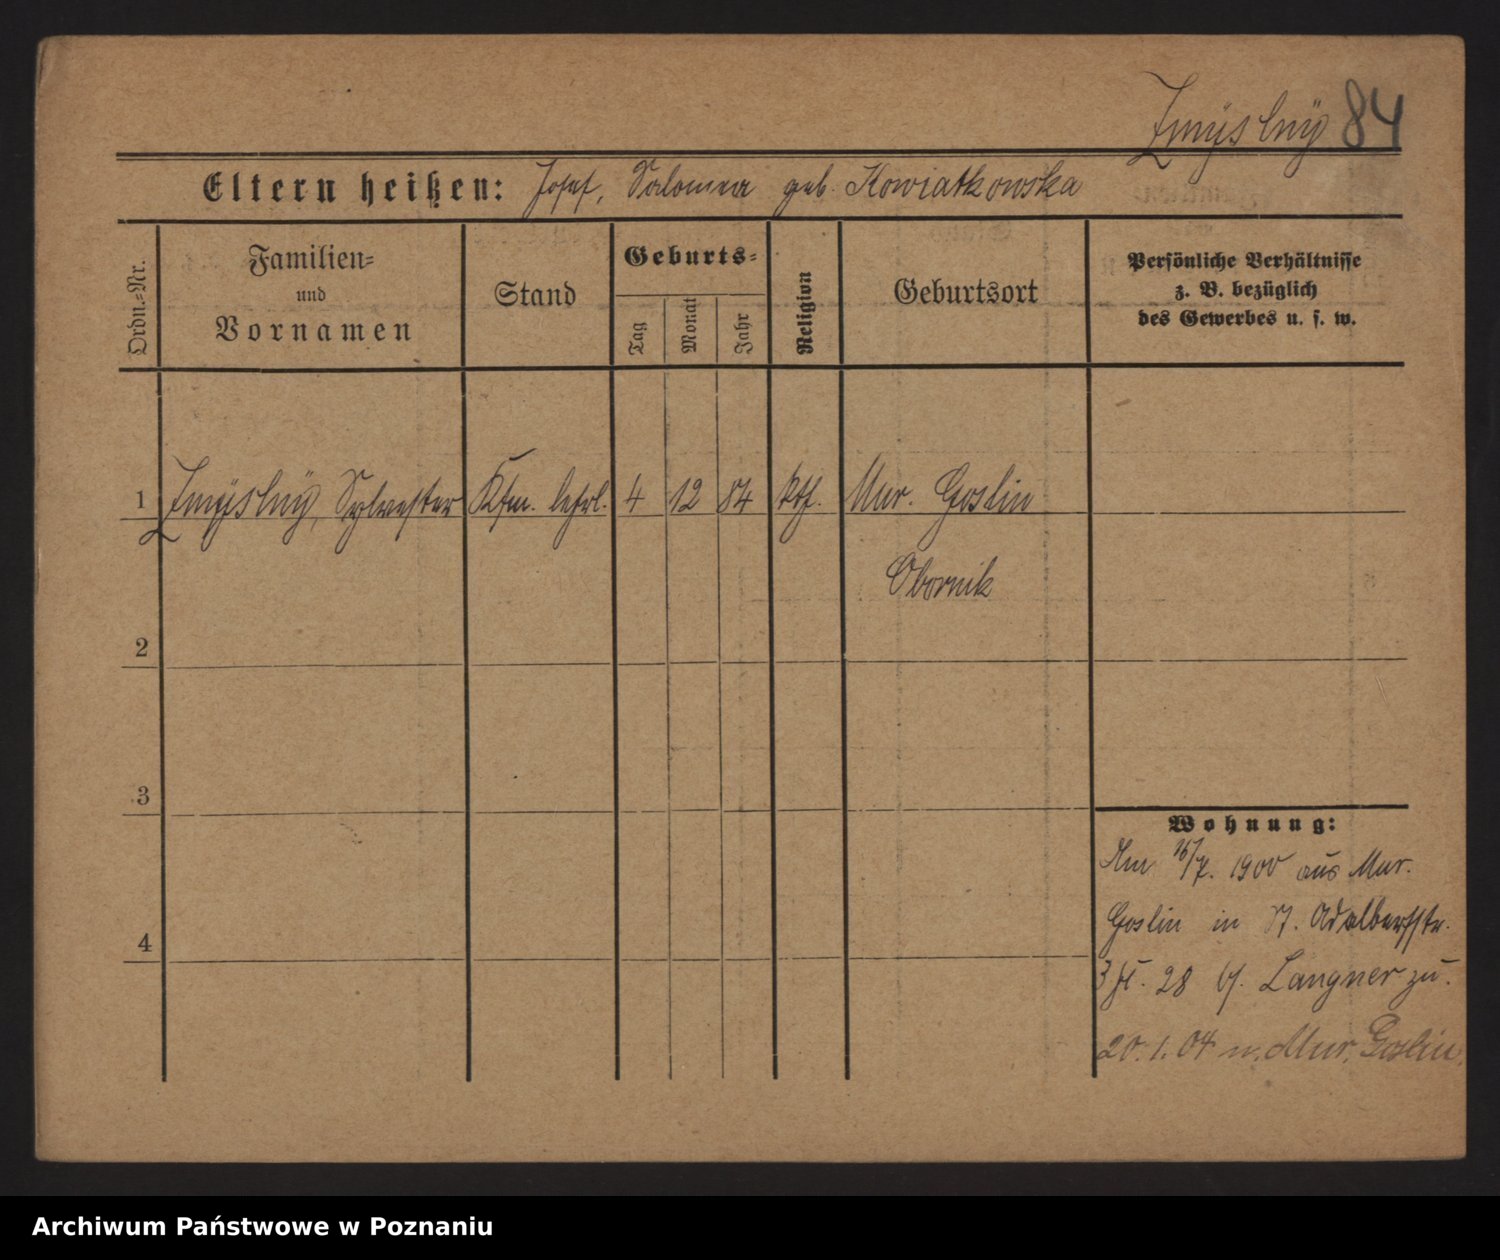 Zmÿslnÿ 84
Eltern heißen: Josef, Salomea geb. Kowiatkowska
Ordn.=Nr.
Familien=
und
Vornamen
Stand
Geburts=
Tag
Monat
Jahr
Religion
Geburtsort
Persönliche Verhältnisse
z. B. bezüglich
des Gewerbes u. s. w.
1 Zmÿslnÿ, Sylvester Kfm. lehrl. 4 12 84 kth. Mur. Goslin
Obornik
2
3
4
Wohnung:
Am 16/7. 1900 aus Mur.
Goslin in St. Adalbertstr.
28 b/. Langner zu.
20.1.04 n. Mur. Goslin
Archiwum Państwowe w Poznaniu